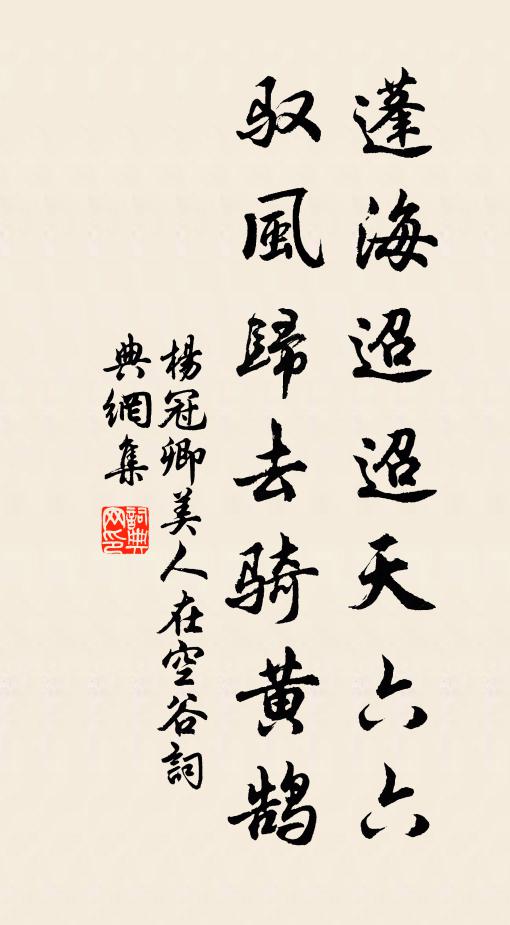 蓬海迢迢天六六
驭風歸去騎黄鹄
楊冠卿美人在空谷詞
典網集
詞典
网印